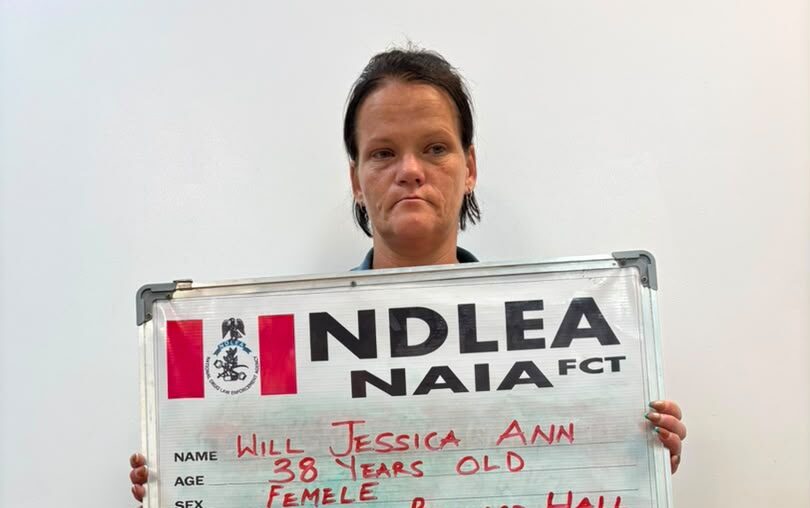 NDLEA
NDLEA
NATIONAL DRUG LAW ENFORCEMENT AGENCY
NAIA FCT
NAME WILL JESSICA ANN
AGE 38 YEARS OLD
SEX FEMELE
HALL